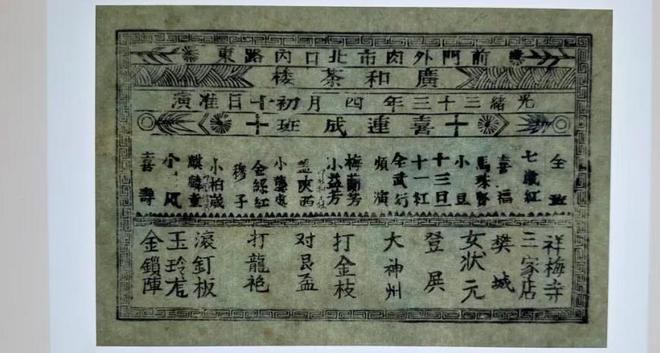 前門外肉市北口內路東
廣和茶楼
光緒三十三年四月初十日准演
十喜連成班十
全班
七歲紅
喜福
小旦
十三旦
十一紅
全武行
頻演
梅蘭芳
小益芳
蓋陝西
金絲紅
穆子
麒麟童
喜壽
祥梅寺
三家店
樊城
女狀元
登殿
大神州
打金枝
对艮盃
打龍袍
滾釘板
玉玲龙
金鎖陣